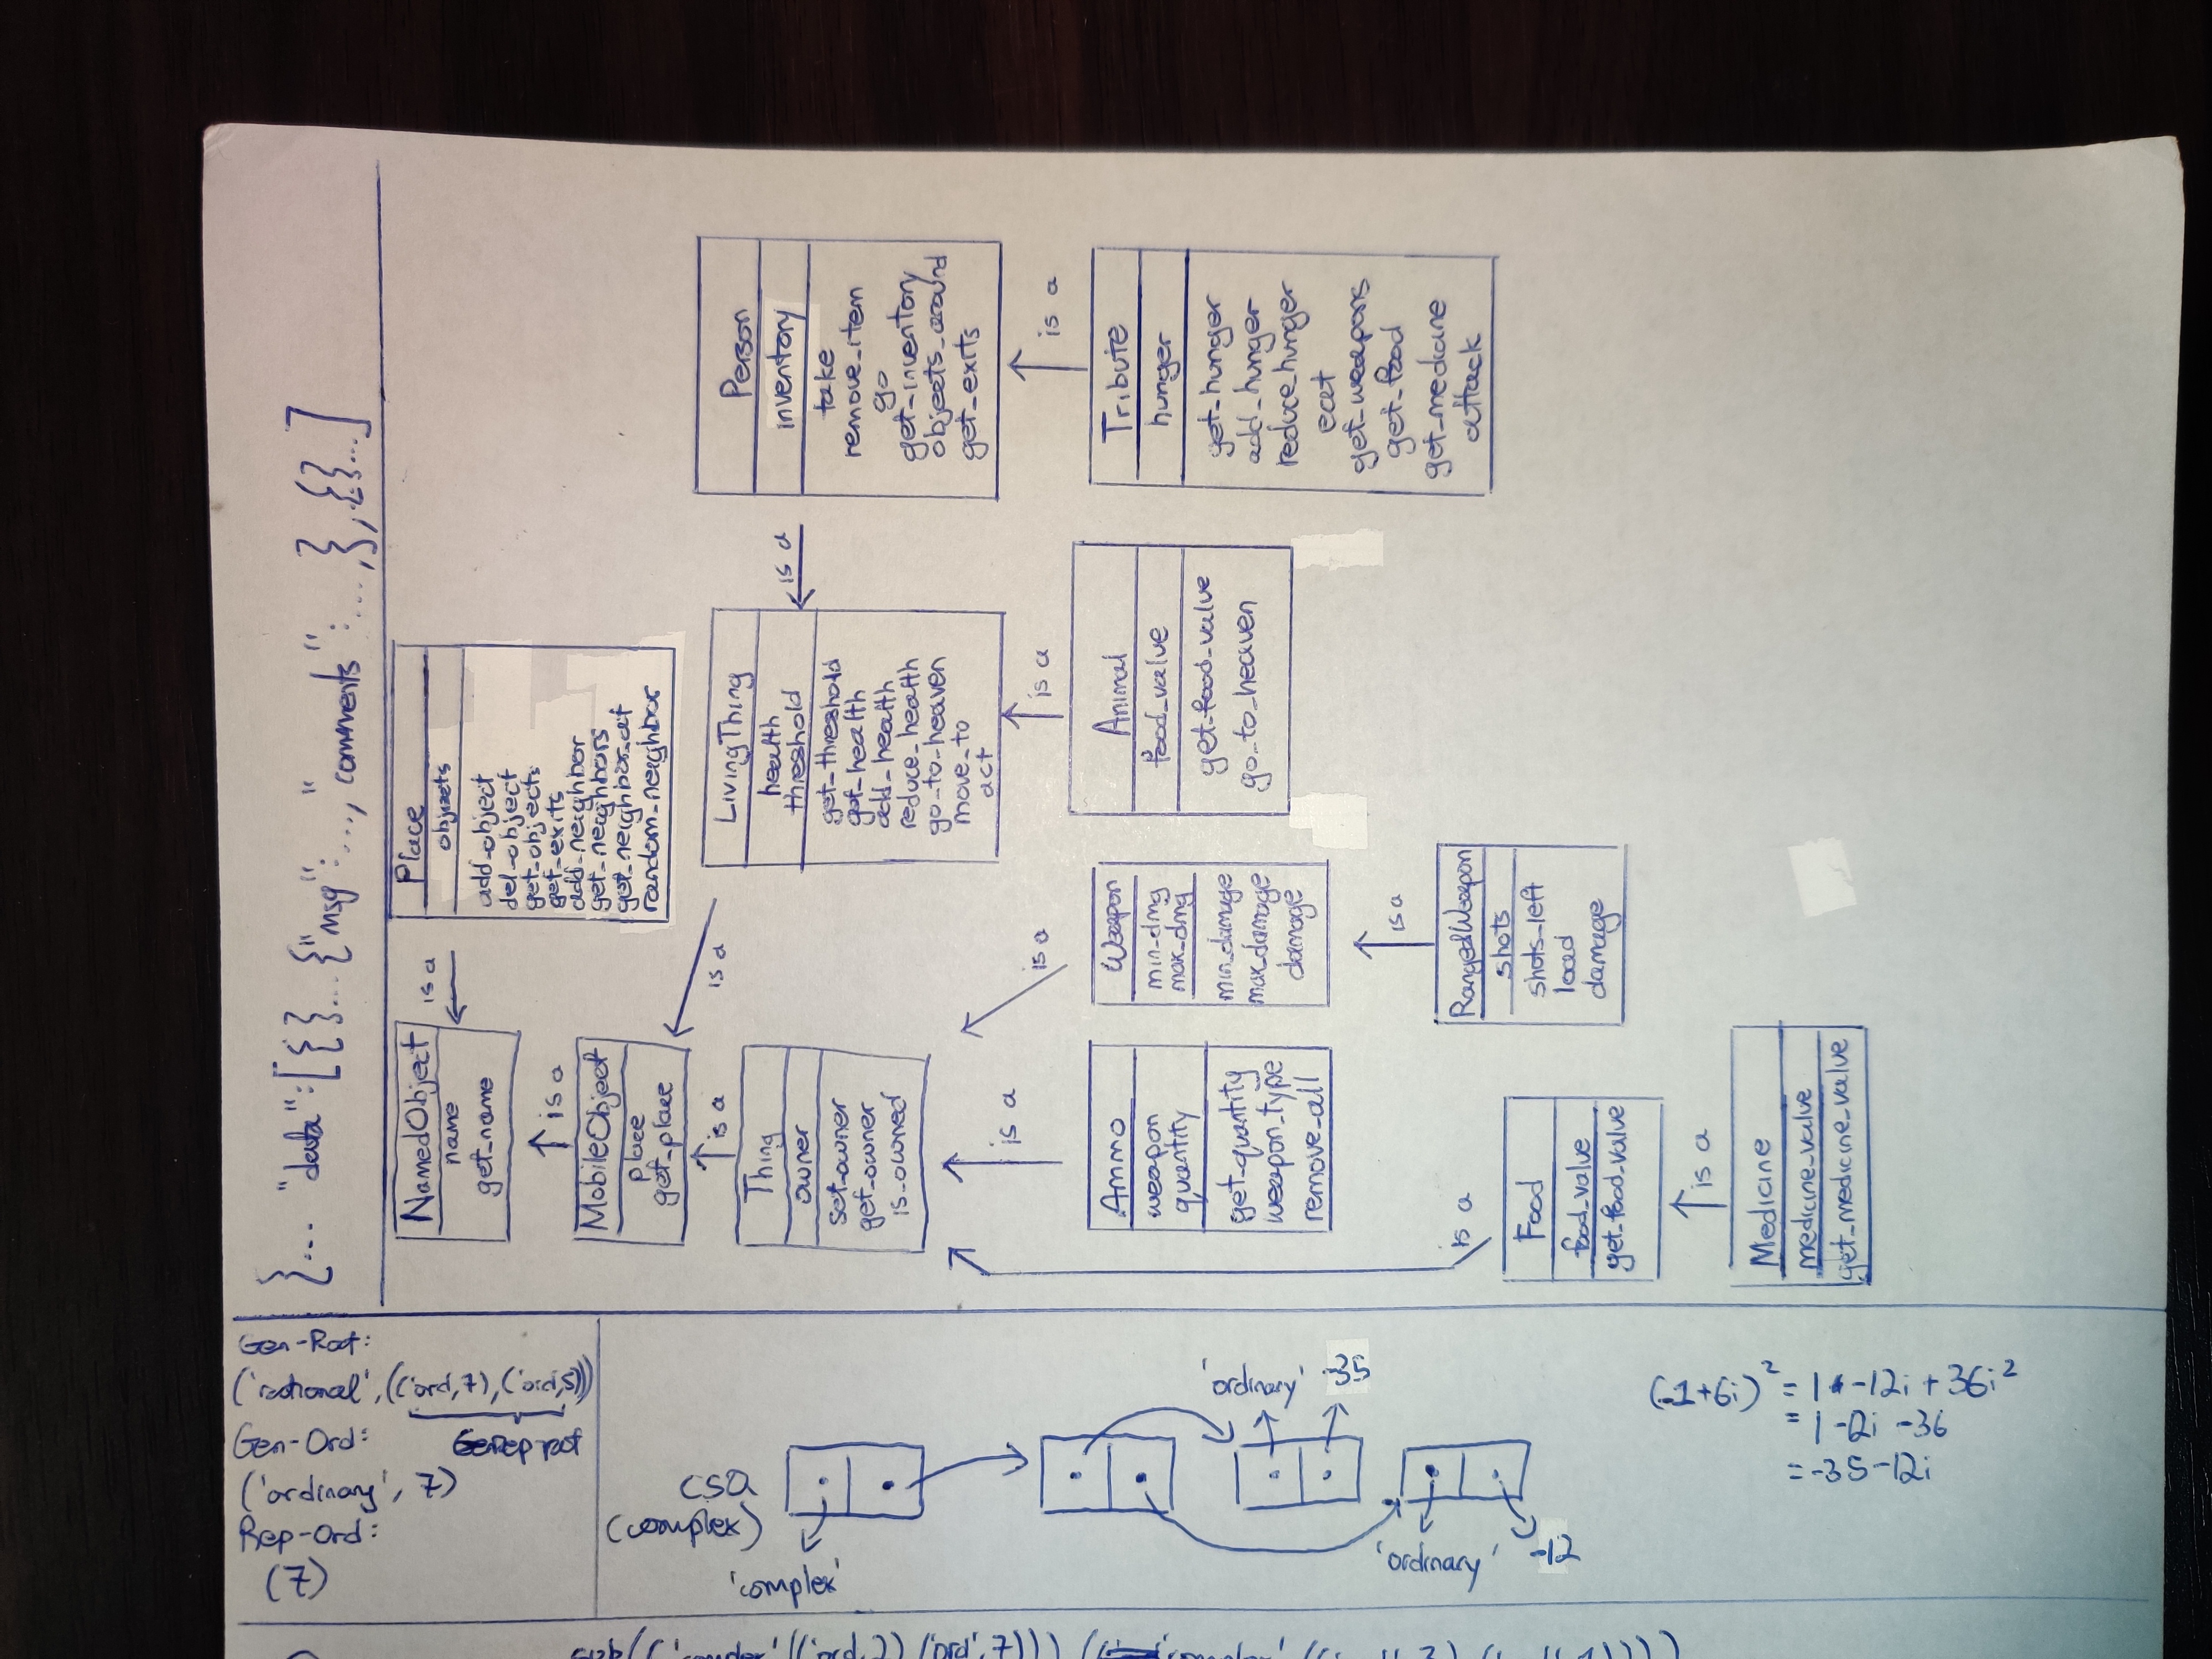 {... "data":[{}...{"msg":...,"comments":...,},{}...]
NamedObject
name
get_name
is a
Place
objects
add_object
del_object
get_objects
get_exits
add_neighbor
get_neighbors
get_neighbor_at
random_neighbor
is a
MobileObject
place
get_place
is a
is a
Thing
owner
set_owner
get_owner
is_owned
LivingThing
health
threshold
get_threshold
get_health
add_health
reduce_health
go_to_heaven
move_to
act
is a
Person
inventory
take
remove_item
go
get_inventory
objects_around
get_exits
is a
is a
is a
is a
Ammo
weapon
quantity
get_quantity
weapon_type
remove_all
Weapon
min_dmg
max_dmg
min_damage
max_damage
damage
Animal
food_value
get_food_value
go_to_heaven
Tribute
hunger
get_hunger
add_hunger
reduce_hunger
eat
get_weapons
get_food
get_medicine
attack
is a
is a
Food
food_value
get_food_value
RangedWeapon
shots
shots_left
load
damage
is a
Medicine
medicine_value
get_medicine_value
Gen-Rat:
('rational',(('ord,7),('ord,5)))
Gen-Ord:
('ordinary', 7)
Rep-Ord:
(7)
(complex)
'complex'
'ordinary' -35
'ordinary' -12
(-1+6i)² = 1 -12i + 36i²
= 1 -12i -36
= -35 -12i